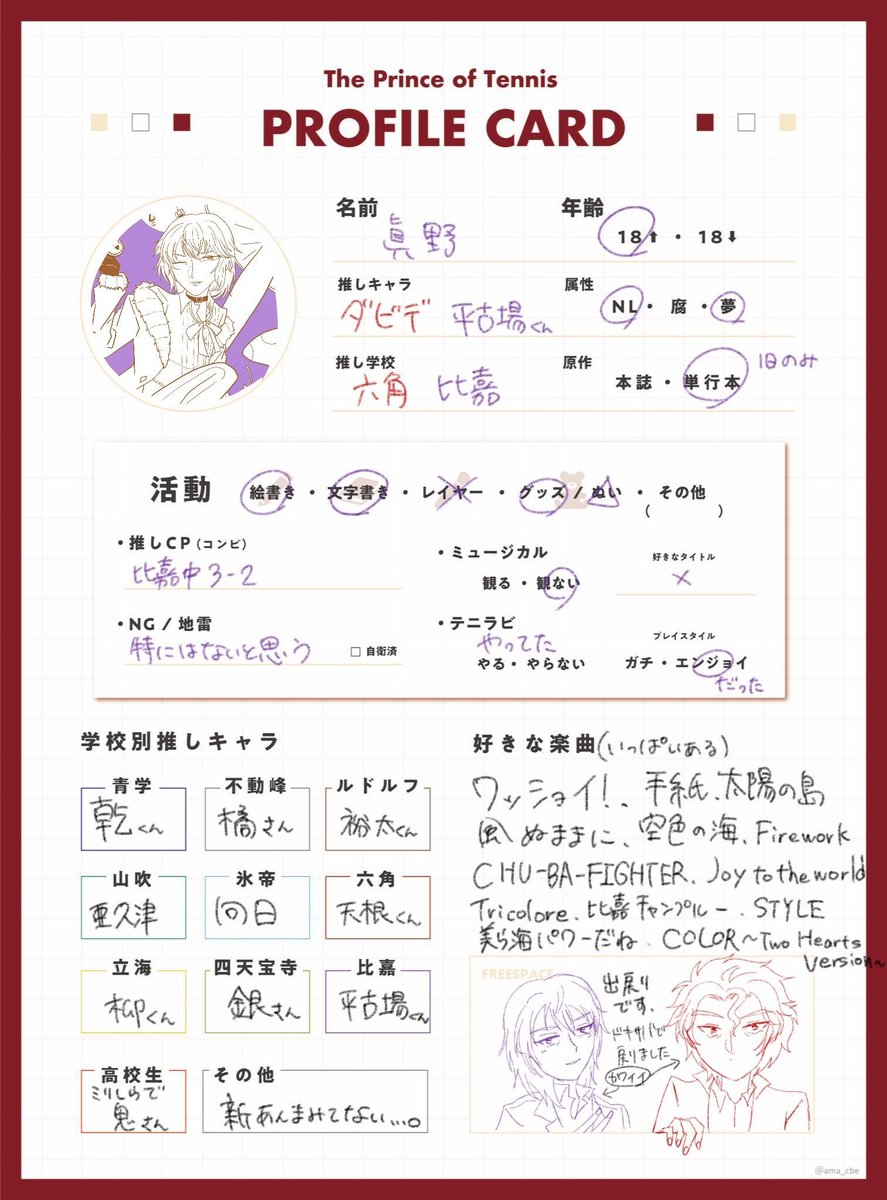 The Prince of Tennis
PROFILE CARD
名前
眞野
年齢
18⬆ ・ 18⬇
推しキャラ
ダビデ 平古場くん
属性
NL ・ 腐 ・ 夢
推し学校
六角 比嘉
原作
本誌 ・ 単行本 旧のみ
活動 絵書き ・ 文字書き ・ レイヤー ・ グッズ / ぬい ・ その他
( )
・推しCP (コンビ)
比嘉中3-2
・ミュージカル
観る ・ 観ない
好きなタイトル
×
・NG / 地雷
特にはないと思う
□ 自衛済
・テニラビ
やってた
やる ・ やらない
プレイスタイル
ガチ ・ エンジョイ
だった
学校別推しキャラ
青学
乾くん
不動峰
橘さん
ルドルフ
裕太くん
山吹
亜久津
氷帝
向日
六角
天根くん
立海
柳くん
四天宝寺
銀さん
比嘉
平古場くん
高校生
ミリしらで
鬼さん
その他
新あんまみてない…。
好きな楽曲(いっぱいある)
ワッショイ!、手紙、太陽の島
風ぬままに、空色の海、Firework
CHU-BA-FIGHTER、Joy to the world
Tricolore、比嘉チャンプルー、STYLE
美ら海パワーだね、COLOR~Two Hearts
Version~
FREESPACE
出戻り
です。
ドキサバで
戻りました
カワイイ
@ama_cbe